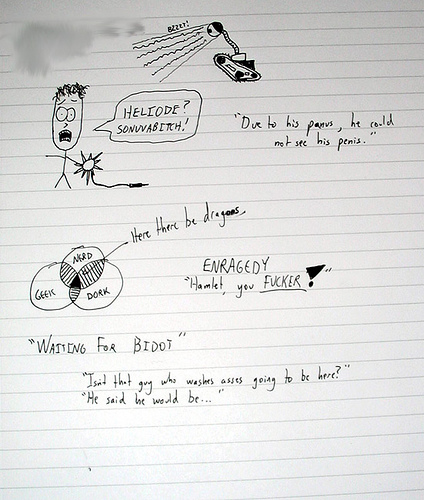 BZZZT!
HELIODE?
SONUVABITCH!
"Due to his panus, he could
not see his penis."
Here there be dragons.
NERD
GEEK
DORK
ENRAGEDY
"Hamlet, you FUCKER!"
"WAITING FOR BIDOT"
"Isn't that guy who washes asses going to be here?"
"He said he would be..."